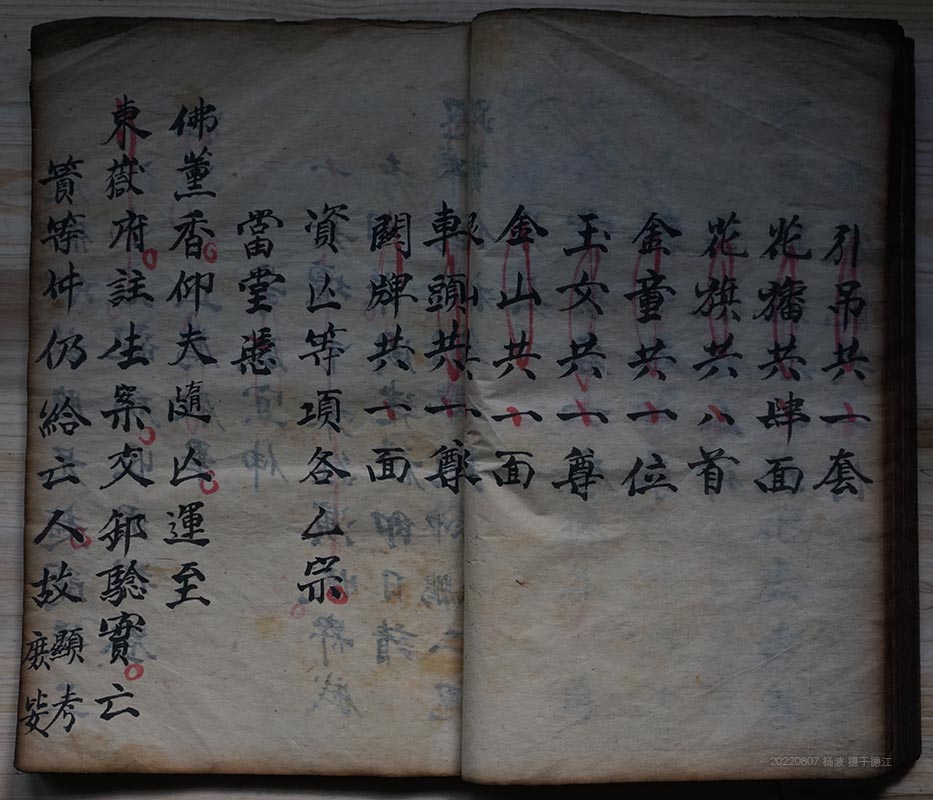 引吊共一套
花旛共肆面
花旗共八首
金童共一位
玉女共一尊
金山共一面
車頭共一尊
關牌共一面
資亡等項各亡宗
當堂憑
佛薰香仰夫隨亡運至
東嶽府註生案交卸驗實亡
等仲仍給亡人故顯考
20220807 杨波 摄于德江